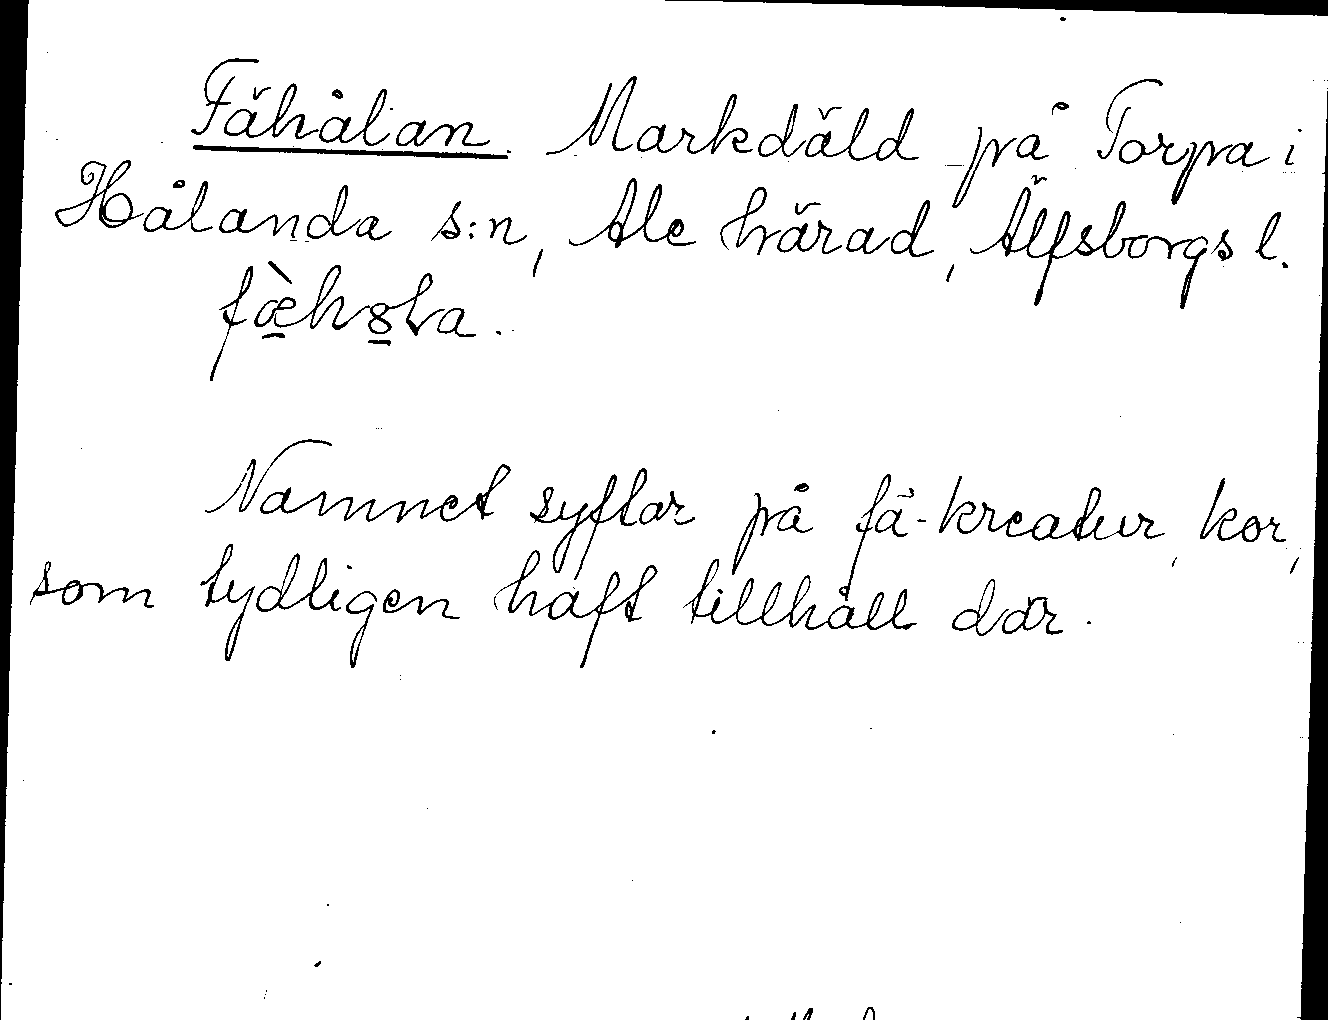 Fähålan. Markdäld på Torpa i
Hålanda s:n, Ale härad, Älfsborgs l.
Namnet syftar på fä-kreatur, kor,
som tydligen haft tillhåll där.